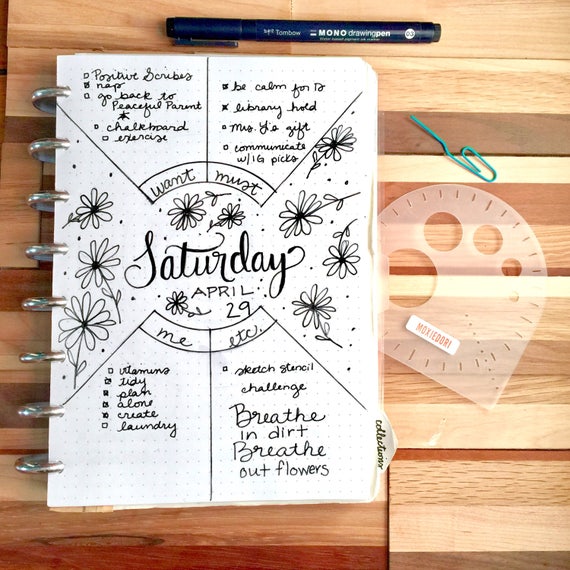 Tombow MONO drawingpen 03
Water-based pigment ink marker
Positive Scribes
nap
go back to
Peaceful Parent
chalkboard
exercise
be calm for B
library hold
Mrs. J's gift
communicate
w/IG picks
want must
Saturday
APRIL
29
me etc.
vitamins
tidy
plan
alone
create
laundry
sketch stencil
challenge
Breathe
in dirt
Breathe
out flowers
MOXIEDORI
collections